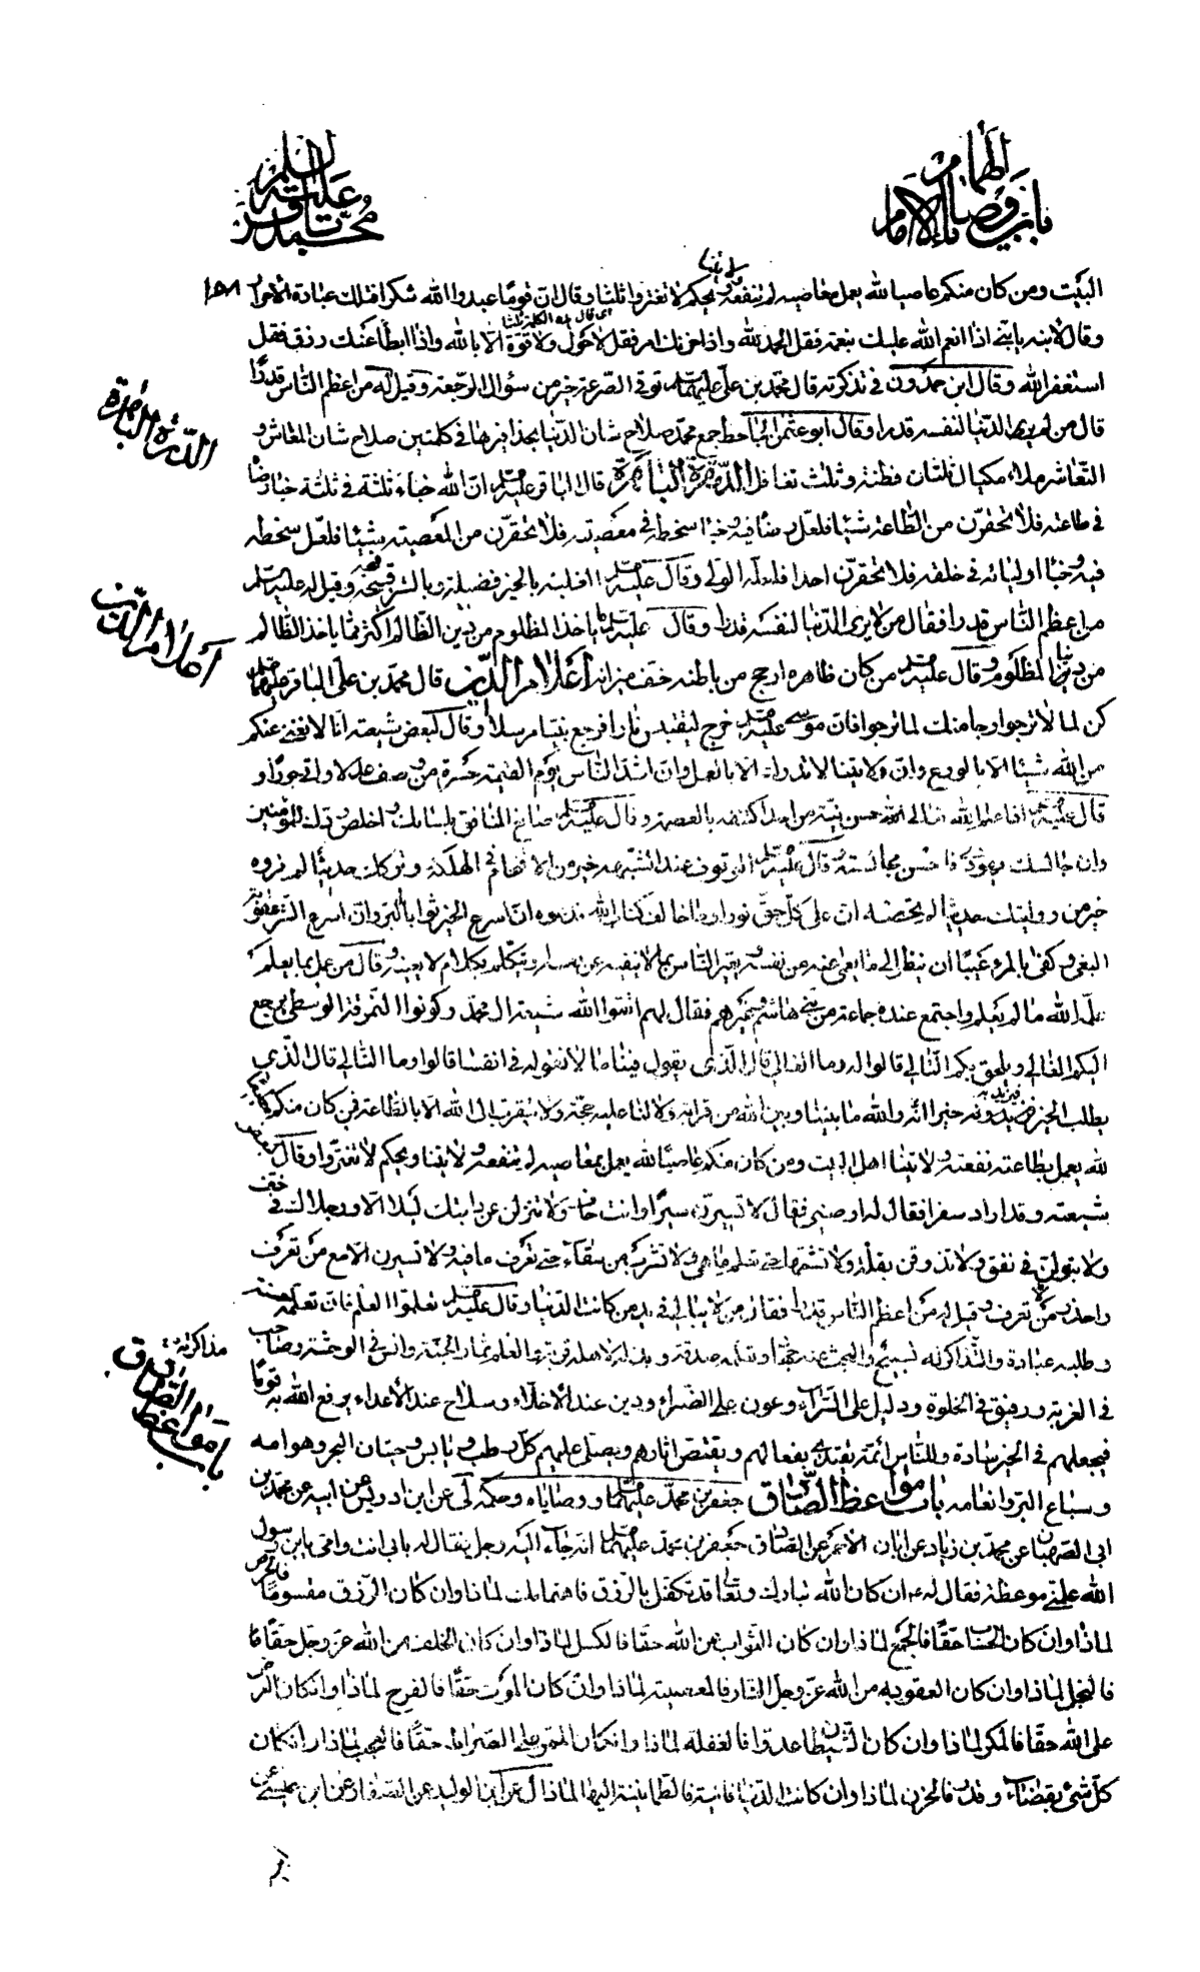 باب نزهة وصايا الامام الهمام
محمد الباقر عليه السلم
البيت ومن كان منكم عاصيا لله يعمل معاصيه لم تنفعه ولايتنا ويحكم لا تغتروا ثلثا وقال ان قوما عبدوا الله شكرا فتلك عبادة الاحرار
وقال لابنه يا بني اذا انعم الله عليك بنعمة فقل الحمد لله واذا حزنك امر فقل لا حول ولا قوة الا بالله واذا ابطأ عنك رزق فقل
استغفر الله وقال ابن حمدون في تذكرته قال محمد بن علي عليهما السلم توقي الصرعة خير من سؤال الرجعة وقيل له من اعظم الناس قدرا
قال من لم ير الدنيا لنفسه قدرا وقال ابو عثمن الجاحظ جمع محمد صلاح شان الدنيا بحذافيرها في كلمتين صلاح شان المعاش و
التعاشر ملاء مكيال ثلثان فطنة وثلث تغافل الدرة الباهرة قال الباقر عليه السلم ان الله خباء ثلثة في ثلثة خبأ رضاه
في طاعته فلا تحقرن من الطاعة شيئا فلعل رضاه فيه وخبأ سخطه في معصيته فلا تحقرن من المعصية شيئا فلعل سخطه
فيه وخبأ اوليائه في خلقه فلا تحقرن احدا فلعله الولي وقال عليه السلم وبالشر وقيل له عليه السلم
من اعظم الناس قدرا فقال من لا يرى الدنيا لنفسه قدرا وقال عليه السلم ما ياخذ المظلوم من دين الظالم اكثر مما ياخذ الظالم
من دنيا المظلوم وقال عليه السلم من كان ظاهره ارجح من باطنه خف ميزانه اعلام الدين قال محمد بن علي الباقر عليهما السلم
كن لما لا ترجو ارجا منك لما ترجو فان موسى عليه السلم خرج ليقتبس نارا فرجع نبيا مرسلا وقال لبعض شيعته انا لا نغني عنكم
من الله شيئا الا بالورع وان ولايتنا لا تدرك الا بالعمل وان اشد الناس يوم القيمة حسرة من وصف عدلا واتى جورا و
قال عليه السلم اذا علم الله تعالى حسن نية من احد اكتنفه بالعصمة وقال عليه السلم صانع المنافق بلسانك واخلص ودك للمؤمنين
وان جالسك يهودي فاحسن مجالسته وقال عليه السلم الوقوف عند الشبهة خير من الاقتحام في الهلكة وتركك حديثا لم تروه
خير من روايتك حديثا لم تحصه ان على كل حق نورا وما خالف كتاب الله فدعوه ان اسرع الخير ثوابا البر وان اسرع الشر عقوبة
البغي وكفى بالمرء عيبا ان ينظر الى ما يعمى عنه من نفسه ويعير الناس بما لا ينفيه عن نفسه او يتكلم بكلام لا يعنيه وقال من عمل بما يعلم
علمه الله ما لم يعلم واجتمع عنده جماعة من بني هاشم وغيرهم فقال لهم اتقوا الله شيعة ال محمد وكونوا النمرقة الوسطى يرجع
اليكم الغالي ويلحق بكم التالي قالوا له وما الغالي قال الذي يقول فينا ما لا نقوله في انفسنا قالوا وما التالي قال الذي
يطلب الخير فيزيد به خيرا انه والله ما بيننا وبين الله من قرابة ولا لنا عليه حجة ولا يتقرب الى الله الا بالطاعة فمن كان منكم مطيعا
لله يعمل بطاعته نفعته ولايتنا اهل البيت ومن كان منكم عاصيا لله يعمل بمعاصيه لم تنفعه ولايتنا ويحكم لا تغتروا وقال لبعض
شيعته وقد اراد سفرا فقال له اوصني فقال لا تسيرن سيرا وانت حاف ولا تنزلن عن دابتك ليلا الا ورجلاك في خف
ولا تبولن في نفق ولا تذوقن بقلة ولا تشمها حتى تعلم ما هي ولا تشرب من سقاء حتى تعرف ما فيه ولا تسيرن الا مع من تعرف
واحذر من لا تعرف وقيل له من اعظم الناس قدرا فقال من لا يبالي في يد من كانت الدنيا وقال عليه السلم تعلموا العلم فان تعلمه حسنة
وطلبه عبادة والمذاكرة له تسبيح والبحث عنه جهاد وتعليمه صدقة وبذله لاهله قربة والعلم ثمار الجنة وانس في الوحشة وصاحب
في الغربة ورفيق في الخلوة ودليل على السراء وعون على الضراء ودين عند الاخلاء وسلاح عند الاعداء يرفع الله به قوما
فيجعلهم في الخير سادة وللناس ائمة يقتدى بفعالهم ويقتص اثارهم ويصلي عليهم كل رطب ويابس وحيتان البحر وهوامه
وسباع البر وانعامه باب مواعظ الصادق جعفر بن محمد عليهما السلم ووصاياه وحكمه لي عن ابن ادريس عن ابيه عن محمد بن
ابي الصهبان عن محمد بن زياد عن ابان الاحمر عن الصادق جعفر بن محمد عليهما السلم انه جاء اليه رجل فقال له بابي انت وامي يا بن رسول
الله علمني موعظة فقال له ع ان كان الله تبارك وتعالى قد تكفل بالرزق فاهتمامك لماذا وان كان الرزق مقسوما فالحرص
لماذا وان كان الحساب حقا فالجمع لماذا وان كان الثواب من الله حقا فالكسل لماذا وان كان الخلف من الله عز وجل حقا
فالبخل لماذا وان كان العقوبة من الله عز وجل النار فالمعصية لماذا وان كان الموت حقا فالفرح لماذا وان كان العرض
على الله حقا فالمكر لماذا وان كان الشيطان عدوا فالغفلة لماذا وان كان الممر على الصراط حقا فالعجب لماذا وان كان
كل شيء بقضاء وقدر فالحزن لماذا وان كانت الدنيا فانية فالطمانينة اليها لماذا ل عن ابن الوليد عن الصفار عن ابن عيسى عن
الدرة الباهرة
اعلام الدين
مذاكرته
باب مواعظ الصادق